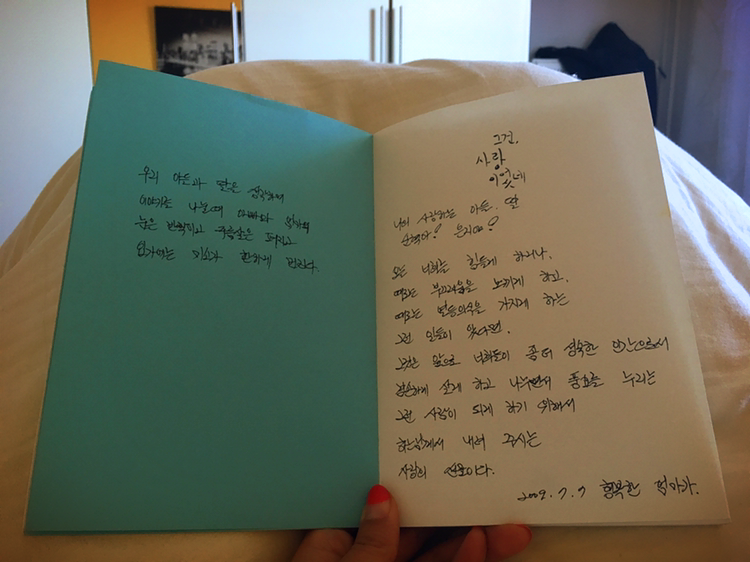 우리 아들과 딸은 생각하며
이야기로 나눌때 아빠와 엄마의
눈은 반짝이고 주름살은 펴지고
입가에는 미소가 환하게 번진다.
그건,
사랑
이었네
나의 사랑하는 아들. 딸
은지야!
오는 너희를 힘들게 하거나.
때로는 부끄러움을 느끼게 하고.
때로는 열등의식을 가지게 하는
그런 일들이 있다면.
그것은 앞으로 너희들이 좀더 성숙한 인간으로서
겸손하게 살게 하고 나누면서 풍요를 누리는
그런 사람이 되게 하기 위해서
하나님께서 내려 주시는
사랑의 선물이다.
2009.7.7 행복한 엄마가.